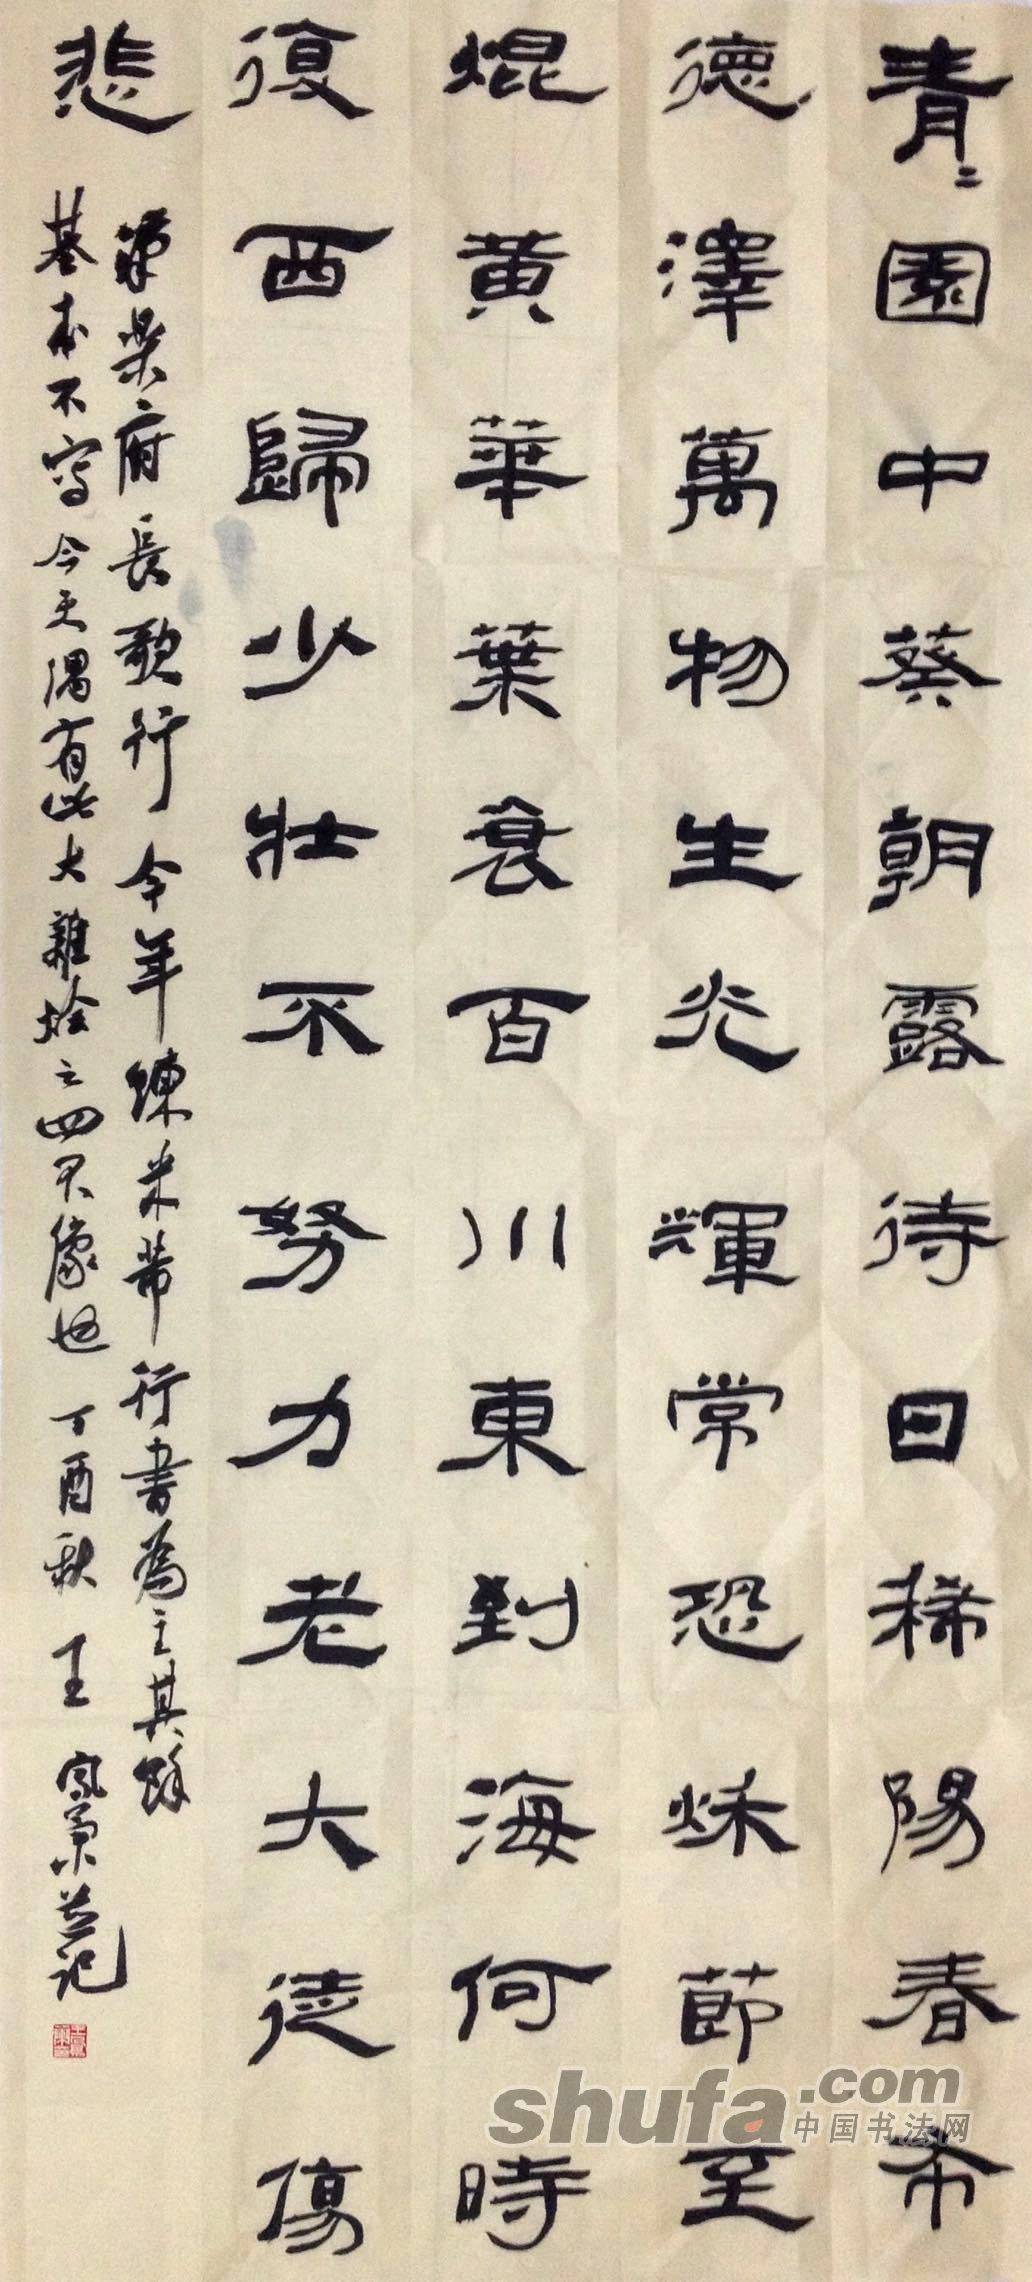 青〻園中葵朝露待日稀陽春布
德澤萬物生光輝常恐秋節至
焜黃華葉衰百川東到海何時
復西歸少壯不努力老大徒傷
悲
漢樂府長歌行今年練米芾行書為主其餘
基本不寫今天偶有此大雜燴之四不像也丁酉秋王
記
shufa.com
中国书法网